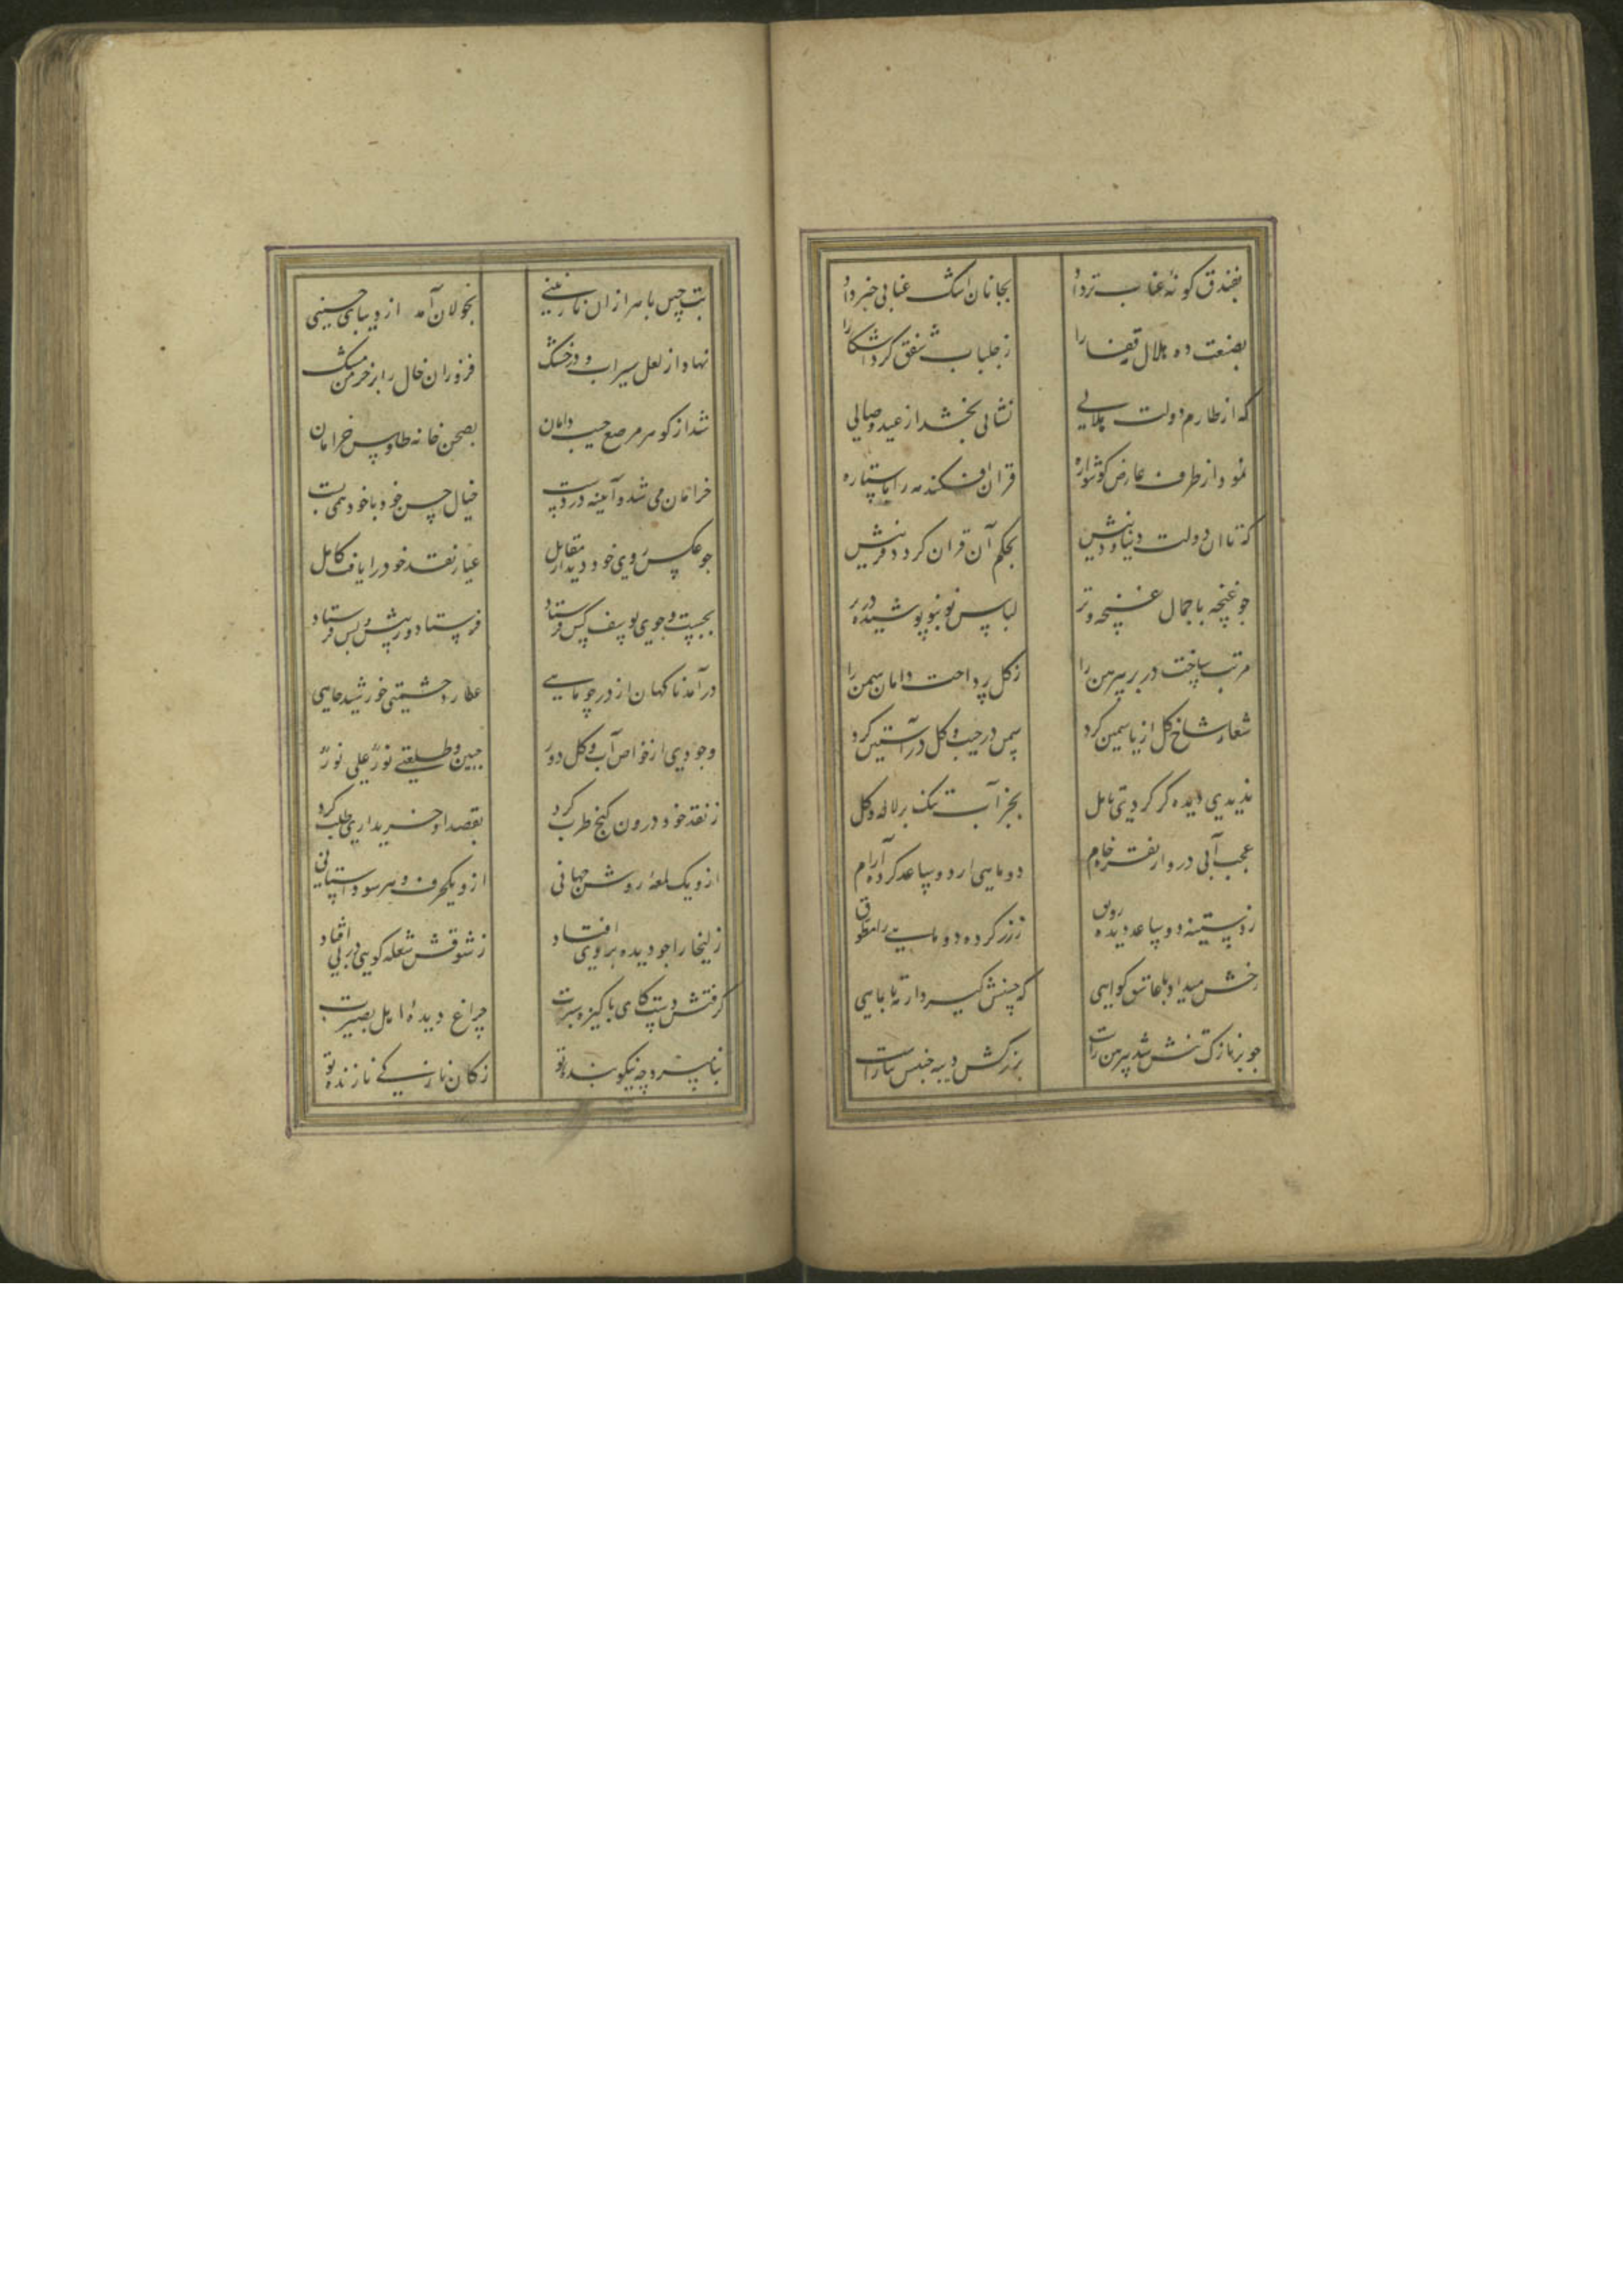 بفندق کونهٔ عناب تر داد بجانان اشک عنابی خبر داد
بصنعت ده هلال ز جلباب شفق کرد آشکارا
که از طارم دولت هلالی نشانی بخشد از عید وصالی
نمود از طرف عارض کوشواره قران افکند مه را با ستاره
که تا آن دولت دنیا و دینش بحکم آن قران کردد قرینش
جو غنچه با جمال لباس نو بنو پوشیده در بر
مرتب ساخت در بر پیرهن را ز کل پرداخت دامان سمن را
شعار شاخ کل از یاسمین کرد سمن در جیب و کل در آستین کرد
ندیدی دیده کر کردی تامل بجز آب تنک بر لاله و کل
عجب آبی درو از نقره خام دو ماهی از دو ساعد کرده آرام
ز دستینه دو ساعد دیده رونق ز زر کرده دو ماهی را مطوق
رخش میداد با عاشق کواهی که حسنش کیرد از مه تا بماهی
جو بر نازک تنش شد پیرهن راست بزرکش دیبه جنس
بت چین با هزاران نازنینی بجولان آمد از دیبای چینی
نهاد از لعل سیراب و در خشک فزوران خال را بر خرمن مشک
شد از کوهر مرصع جیب و دامان بصحن خانه طاوس خرامان
خرامان می شد و آیینه در دست خیال حسن خود با خود همی بست
جو عکس روی خود دید از مقابل عیار نقد خود را یافت کامل
بجست و جوی یوسف کس فرستاد پرستاران ز پیش و پس فرستاد
درآمد ناکهان از در چو ماهی عطارد حشمتی خورشید جاهی
وجودی از خواص آب و کل دور جبین و طلعتی نور علی نور
ز نقد خود درون کنج طرب کرد بقصد او خریداری طلب کرد
ازو یک لمعه و روشن جهانی ازو یکحرف و هر سو داستانی
زلیخا را جو دیده بر وی افتاد ز شوقش شعله کویی در نی افتاد
کرفتش دست کای پاکیزه سیرت چراغ دیدهٔ اهل بصیرت
بنامیزد چه نیکو بنده تو